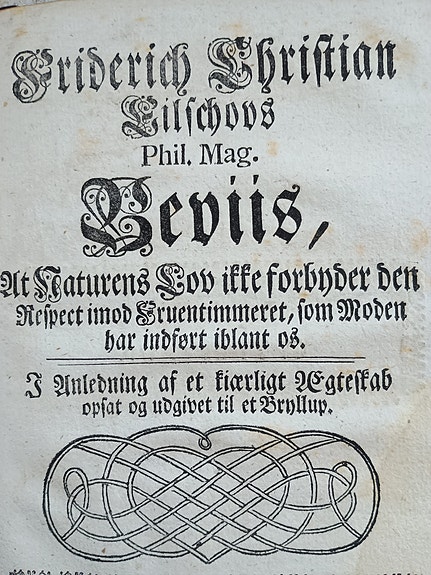 Friderich Christian
Eilschovs
Phil. Mag.
Beviis,
At Naturens Lov ikke forbyder den
Respect imod Fruentimmeret, som Moden
har indført iblant os.
I Anledning af et kiærligt Ægteskab
opsat og udgivet til et Bryllup.